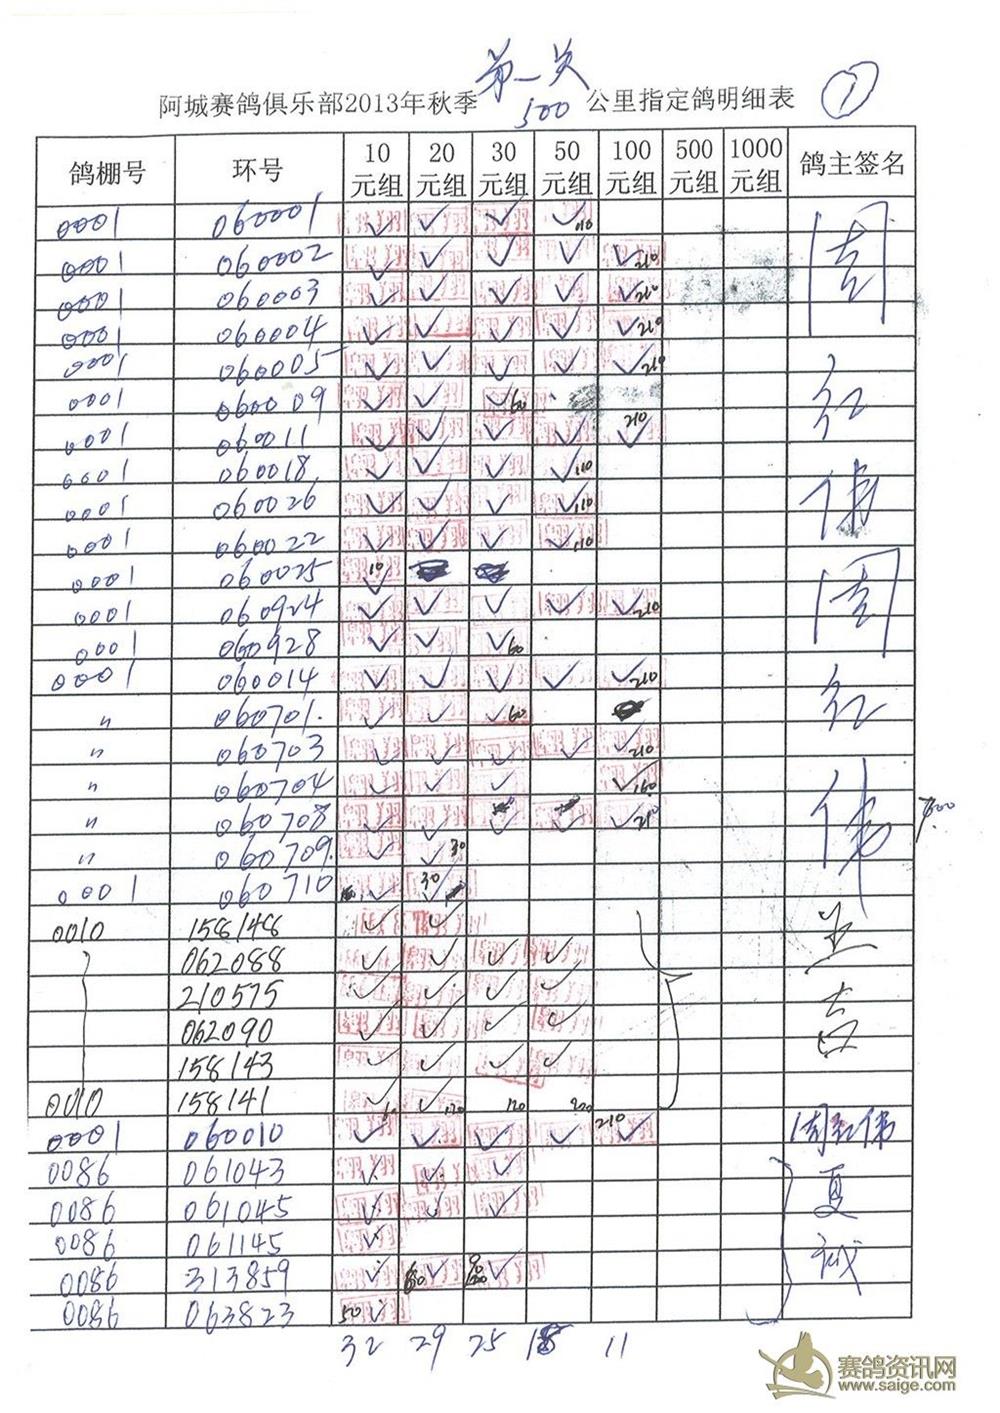 第一关
阿城赛鸽俱乐部2013年秋季 500 公里指定鸽明细表 ①
鸽棚号 环号 10元组 20元组 30元组 50元组 100元组 500元组 1000元组 鸽主签名
0001 060001 ✓ ✓ ✓ ✓110 周
0001 060002 ✓ ✓ ✓ ✓ ✓210
0001 060003 ✓ ✓ ✓ ✓ ✓210
0001 060004 ✓ ✓ ✓ ✓ ✓210
0001 060005 ✓ ✓ ✓ ✓ ✓210
0001 060009 ✓ ✓ ✓60 红
0001 060011 ✓ ✓ ✓ ✓ ✓210
0001 060018 ✓ ✓ ✓ ✓110
0001 060026 ✓ ✓ ✓ ✓110 伟
0001 060022 ✓ ✓ ✓ ✓110
0001 060025 ✓10
0001 060924 ✓ ✓ ✓ ✓ ✓210 周
0001 060928 ✓ ✓ ✓60
0001 060014 ✓ ✓ ✓ ✓ ✓210
〃 060701 ✓ ✓ ✓60 红
〃 060703 ✓ ✓ ✓ ✓ ✓210
〃 060704 ✓ ✓ ✓ ✓160
〃 060708 ✓ ✓ ✓ ✓ ✓210 伟
〃 060709 ✓ ✓30
0001 060710 ✓ ✓30
0010 158148 ✓ ✓
062088 ✓ ✓ ✓ ✓
210575 ✓ ✓ ✓ ✓ 吉
062090 ✓ ✓ ✓ ✓
158143 ✓ ✓ ✓ ✓
0010 158141 ✓60 ✓120 120 200
0001 060010 ✓ ✓ ✓ ✓ ✓210 周红伟
0086 061043 ✓ ✓ ✓ 夏
0086 061045 ✓ ✓ ✓
0086 061145 ✓
0086 313859 ✓ ✓ ✓ 诚
0086 063823 50 ✓
32 29 25 18 11
赛鸽资讯网
www.saige.com